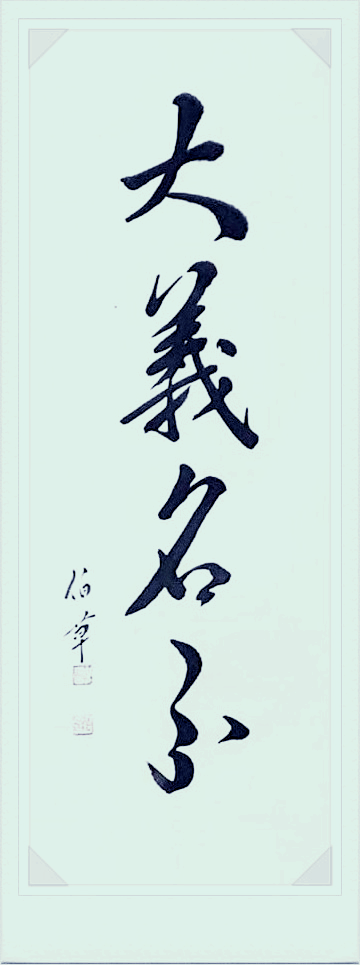 大義名分
伯草